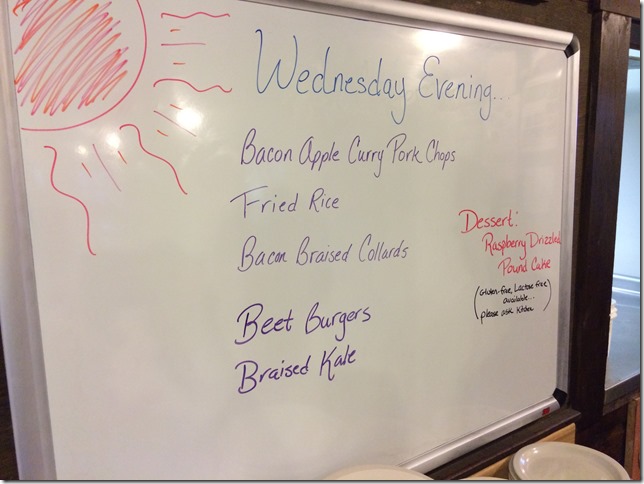 Wednesday Evening...
Bacon Apple Curry Pork Chops
Fried Rice
Bacon Braised Collards
Beet Burgers
Braised Kale
Dessert:
Raspberry Drizzled
Pound Cake
(Gluten-free, Lactose free
available...
please ask Kitchen)